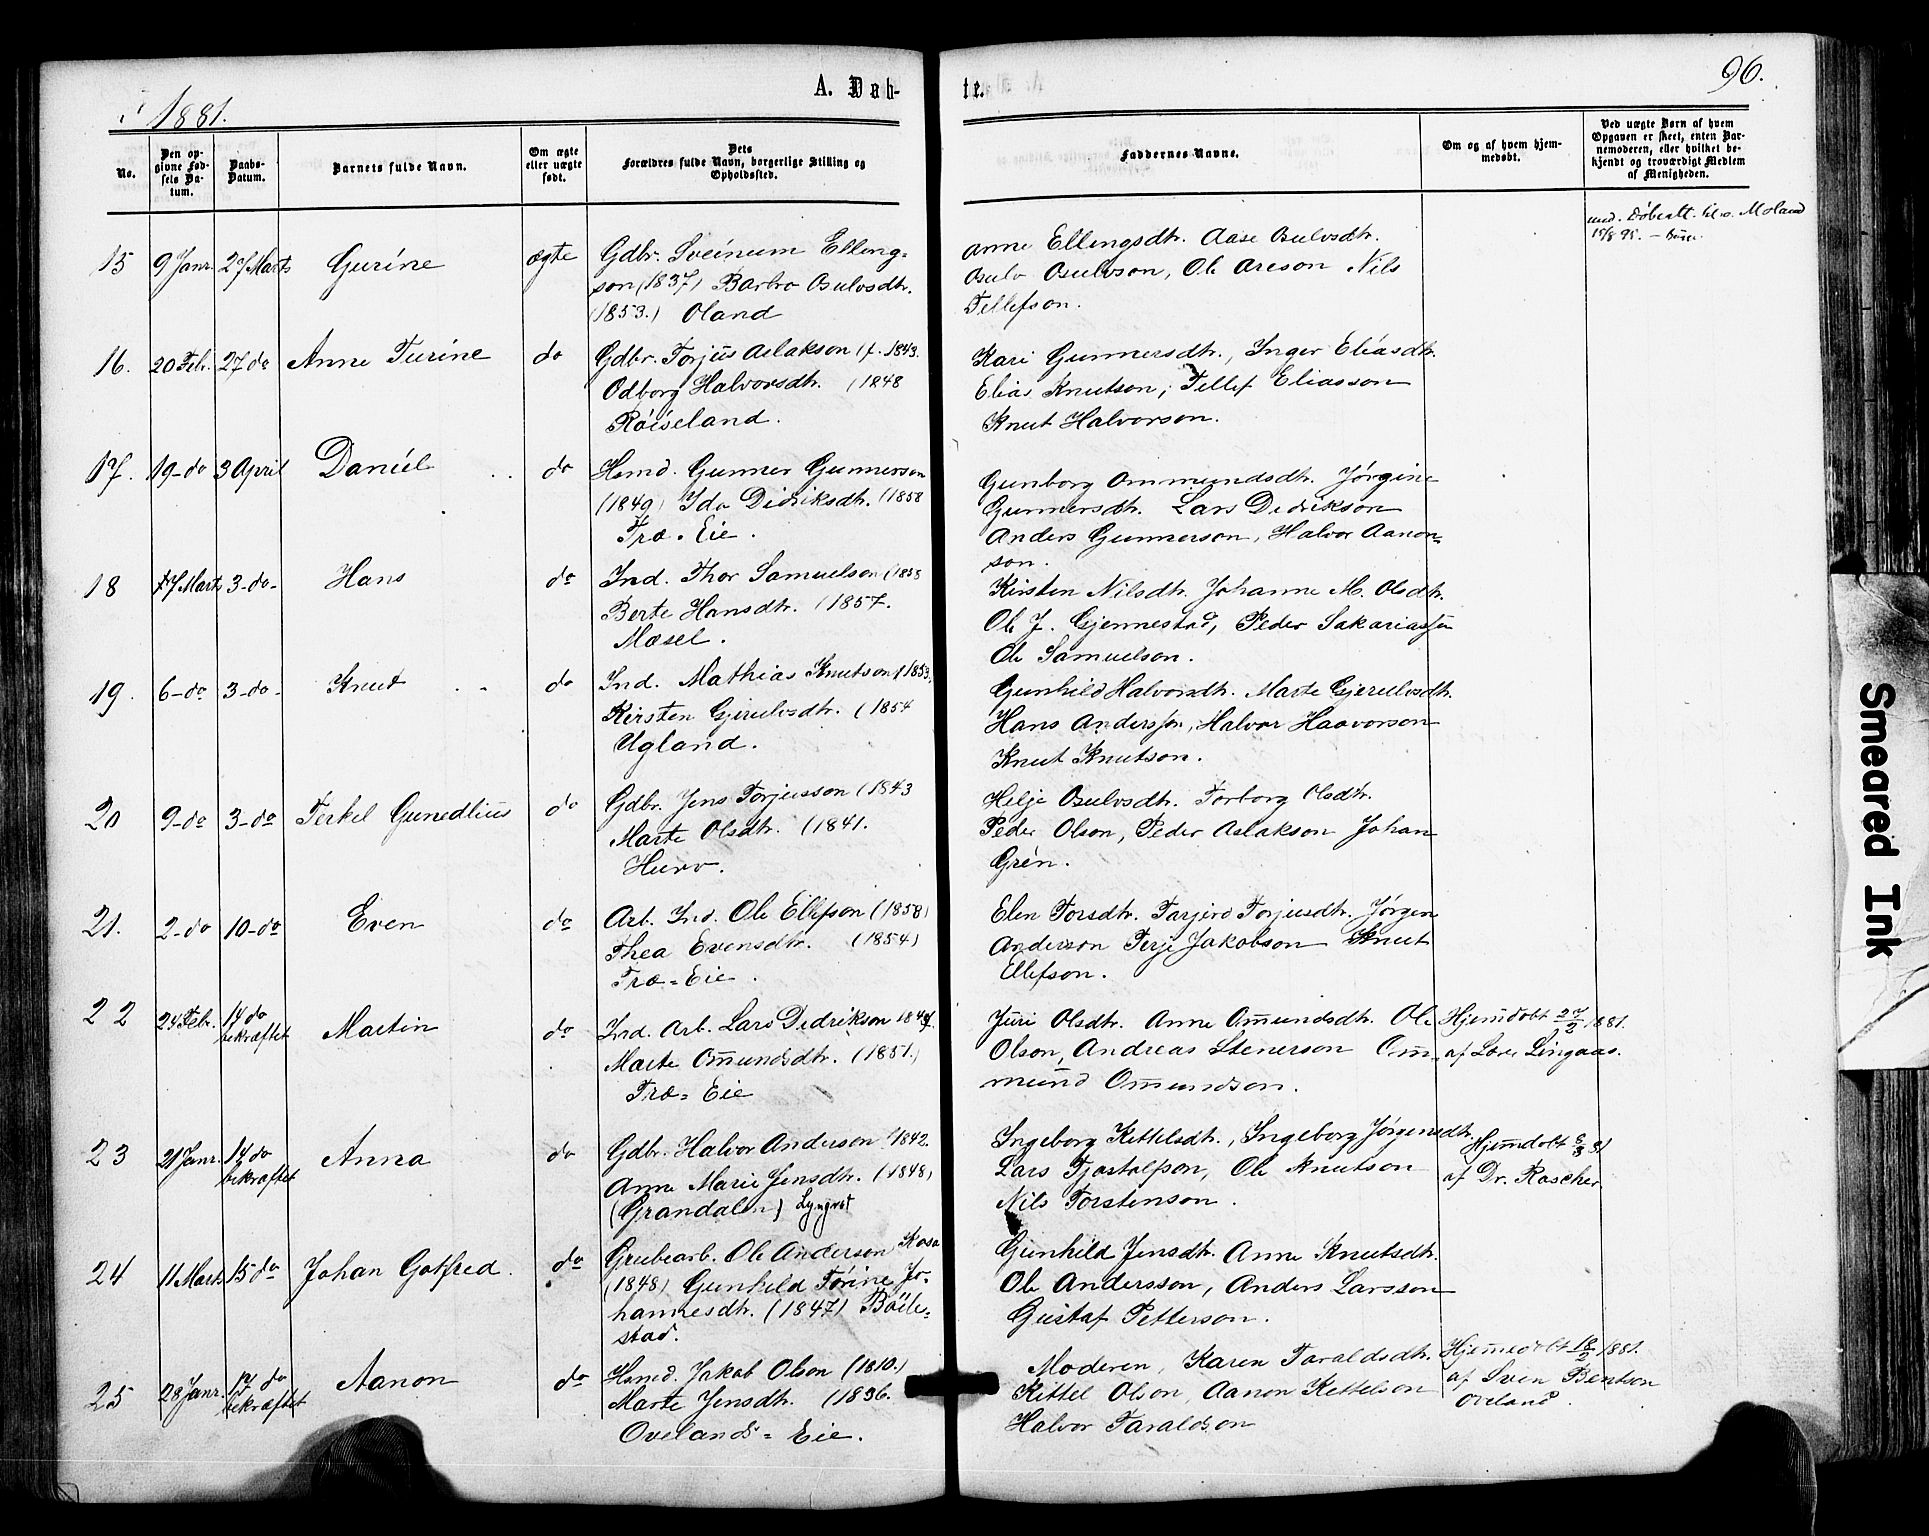 1881.
A. Døb-
te.
96.
No.
Den op-
givne Fød-
sels Da-
tum.
Daabs-
Datum.
Barnets fulde Navn.
Om ægte
eller uægte
født.
Dets
Forældres fulde Navn, borgerlige Stilling og
Opholdssted.
Faddernes Navne.
Om og af hvem hjem-
medøbt.
Ved uægte Børn af hvem
Opgaven er skeet, enten Bar-
nemoderen, eller hvilket be-
kjendt og troværdigt Medlem
af Menigheden.
15 9 Janr. 27 Marts Gurine ægte
Gdbr. Sveinum Elling-
son (1837) Barbro Osulvsdtr.
(1853.) Oland
Anne Ellingsdtr. Aase Osulvsdtr.
Osulv Osulvson, Ole Areson Nils
Tellefson.
Døbeatt. Moland
15/8 95.
16. 20 Febr. 27 do Anne Turine do
Gdbr. Torjus Aslakson (f. 1843.
Odborg Halvorsdtr. (1848
Röiseland.
Kari Gunnersdtr., Inger Eliasdtr.
Elias Knutson, Tellef Eliasson
Knut Halvorson.
17. 19-do 3 April Daniel do
Hsmd. Gunner Gunnerson
(1849) Ida Didriksdtr. (1858
Træ-Eie.
Gunborg Ommundsdtr. Jørgine
Gunnersdtr. Lars Dedrikson
Anders Gunnerson, Halvor Aanon-
son.
18 17 Marts 3-do- Hans do
Ind. Thor Samuelson (1858
Berte Hansdtr. (1857.
Mæsel.
Kirsten Nilsdtr. Johanne M. Olsdtr.
Ole J. Gjennestad, Peder Sakariassen
Ole Samuelson.
19. 6-do 3-do- Knut do
Ind. Mathias Knutson (1853.
Kirsten Gjerulvsdtr. (1854
Ugland.
Gunhild Halvorsdtr. Marte Gjerulvsdtr.
Hans Anderssen, Halvor Haavorson
Knut Knutson.
20 9-do 3-do Terkel Gunedlius do
Gdbr. Jens Torjusson (1843
Marte Olsdtr. (1841.
Hurv.
Helje Osulvsdtr. Torborg Olsdtr.
Peder Olson, Peder Aslakson Johan
Grén.
21. 2-do 10-do Even do
Arb. Ind. Ole Ellefson (1858)
Thea Evensdtr. (1854)
Træ-Eie.
Elen Torsdtr. Tarjerd Torjusdtr. Jørgen
Anderson Terje Jakobson Knut
Ellefson.
22 24 Febr. 14 do
bekræftet Martin do
Ind. Arb. Lars Dedrikson 1849.
Marte Omundsdtr. (1851.)
Træ-Eie
Juri Olsdtr. Anne Omundsdtr. Ole
Olson, Andreas Stenerson Om-
mund Omundson.
Hjemdøbt 27/2 1881.
af Lærer Lingaas.
23 21 Janr. 14 do
bekræftet Anna do
Gdbr. Halvor Anderson (1842.
Anne Marie Jensdtr. (1848)
(Grandalen) Lyngrot
Ingeborg Kittelsdtr., Ingeborg Jørgensdtr.
Lars Tjøstolfson, Ole Knutson
Nils Torstenson.
Hjemdøbt 6/3 81
af Dr. Rascher.
24 11 Marts 15 do Johan Gotfred. do
Grubearb. Ole Anderson Kasa
(1848) Gunhild Törine Jo-
hannesdtr. (1847) Böile-
stad.
Gunhild Jensdtr. Anne Knutsdtr.
Ole Andersson, Anders Larsson
Gustaf Petterson.
25 28 Janr. 17 do
bekræftet Aanon do
Hsmd. Jakob Olson (1810.)
Marte Jensdtr. (1836.
Ovelands-Eie.
Moderen, Karen Taraldsdtr.
Kittel Olson, Aanon Kettelson
Halvor Taraldson
Hjemdøbt 12/2 1881.
af Sven Bentson
Oveland.
Smeared Ink